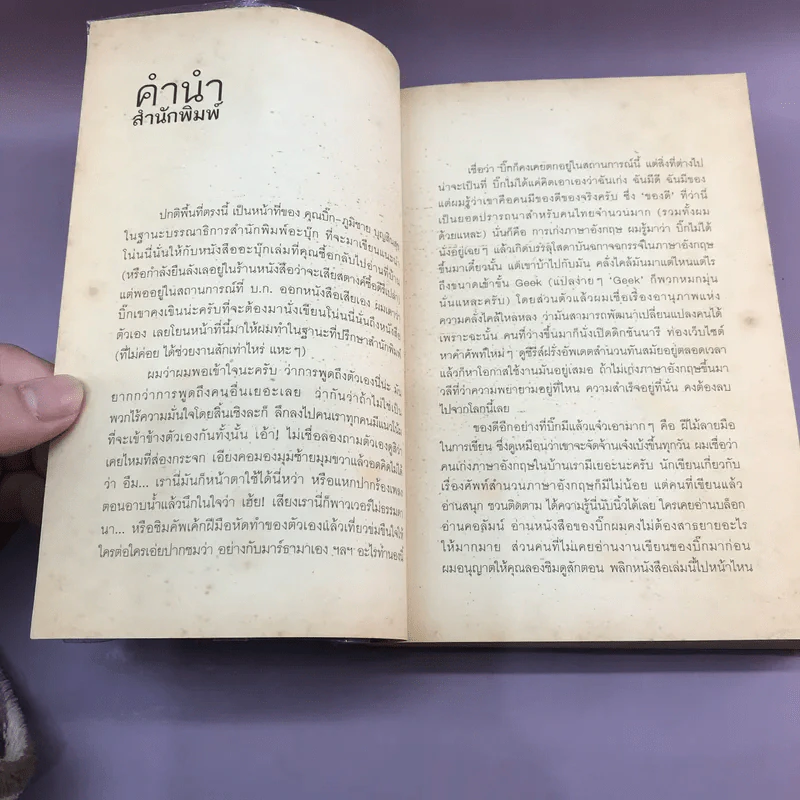 คำนำ
สำนักพิมพ์
ปกติพื้นที่ตรงนี้ เป็นหน้าที่ของ คุณบิ๊ก-ภูมิชาย บุญสินสุข
ในฐานะบรรณาธิการสำนักพิมพ์อะบุ๊ก ที่จะมาเขียนแนะนำ
โน่นนี่นั่นให้กับหนังสืออะบุ๊กเล่มที่คุณซื้อกลับไปอ่านที่บ้าน
(หรือกำลังยืนลังเลอยู่ในร้านหนังสือว่าจะเสียสตางค์ซื้อดีรึเปล่า)
แต่พออยู่ในสถานการณ์ที่ บ.ก. ออกหนังสือเสียเอง ผมเดาว่า
บิ๊กเขาคงเขินน่ะครับที่จะต้องมานั่งเขียนโน่นนี่นั่นถึงหนังสือ
ตัวเอง เลยโยนหน้าที่นี้มาให้ผมทำในฐานะที่ปรึกษาสำนักพิมพ์
(ที่ไม่ค่อย ได้ช่วยงานสักเท่าไหร่ แหะๆ)
ผมว่าผมพอเข้าใจนะครับ ว่าการพูดถึงตัวเองนี่น่ะ มัน
ยากกว่าการพูดถึงคนอื่นเยอะเลย ว่ากันว่าถ้าไม่ใช่เป็น
พวกไร้ความมั่นใจโดยสิ้นเชิงละก็ ลึกลงไปคนเราทุกคนมีแนวโน้ม
ที่จะเข้าข้างตัวเองกันทั้งนั้น เอ้า! ไม่เชื่อลองถามตัวเองดูสิว่า
เคยไหมที่ส่องกระจก เอียงคอมองมุมซ้ายมุมขวาแล้วอดคิดไม่ได้
ว่า อืม... เรานี่มันก็หน้าตาใช้ได้นี่หว่า หรือแหกปากร้องเพลง
ตอนอาบน้ำแล้วนึกในใจว่า เฮ้ย! เสียงเรานี่ก็พาวเวอร์ไม่ธรรมดา
นา... หรือชิมคัพเค้กฝีมือหัดทำของตัวเองแล้วเที่ยวข่มขืนใจให้
ใครต่อใครเอ่ยปากชมว่า อย่างกับมาร์ธามาเอง ฯลฯ อะไรทำนองนี้
เชื่อว่า บิ๊กก็คงเคยตกอยู่ในสถานการณ์นี้ แต่สิ่งที่ต่างไป
น่าจะเป็นที่ บิ๊กไม่ได้แค่คิดเอาเองว่าฉันเก่ง ฉันมีดี ฉันมีของ
แต่ผมรู้ว่าเขาคือคนมีของดีของจริงครับ ซึ่ง 'ของดี' ที่ว่านี้
เป็นยอดปรารถนาสำหรับคนไทยจำนวนมาก (รวมทั้งผม
ด้วยแหละ) นั่นก็คือ การเก่งภาษาอังกฤษ ผมรู้มาว่า บิ๊กไม่ได้
นั่งอยู่เฉยๆ แล้วเกิดบรรลุโสดาบันฉกาจฉกรรจ์ในภาษาอังกฤษ
ขึ้นมาเดี๋ยวนั้น แต่เขาบ้าไปกับมัน คลั่งไคล้มันมาแต่ไหนแต่ไร
ถึงขนาดเข้าขั้น Geek (แปลง่ายๆ 'Geek' ก็พวกหมกมุ่น
นั่นแหละครับ) โดยส่วนตัวแล้วผมเชื่อเรื่องอานุภาพแห่ง
ความคลั่งไคล้ไหลหลง ว่ามันสามารถพัฒนาเปลี่ยนแปลงคนได้
เพราะฉะนั้น คนที่ว่างขึ้นมาก็นั่งเปิดดิกชันนารี ท่องเว็บไซต์
หาคำศัพท์ใหม่ๆ ดูซีรีส์ฝรั่งอัพเดตสำนวนทันสมัยอยู่ตลอดเวลา
แล้วก็หาโอกาสใช้งานมันอยู่เสมอ ถ้าไม่เก่งภาษาอังกฤษขึ้นมา
วลีที่ว่าความพยายามอยู่ที่ไหน ความสำเร็จอยู่ที่นั่น คงต้องลบ
ไปจากโลกนี้เลย
ของดีอีกอย่างที่บิ๊กมีแล้วแจ๋วเอามากๆ คือ ฝีไม้ลายมือ
ในการเขียน ซึ่งดูเหมือนว่าเขาจะจัดจ้านเจ๋งเป้งขึ้นทุกวัน ผมเชื่อว่า
คนเก่งภาษาอังกฤษในบ้านเรามีเยอะนะครับ นักเขียนเกี่ยวกับ
เรื่องศัพท์สำนวนภาษาอังกฤษก็มีไม่น้อย แต่คนที่เขียนแล้ว
อ่านสนุก ชวนติดตาม ได้ความรู้นี่นับนิ้วได้เลย ใครเคยอ่านบล็อก
อ่านคอลัมน์ อ่านหนังสือของบิ๊กผมคงไม่ต้องสาธยายอะไร
ให้มากมาย ส่วนคนที่ไม่เคยอ่านงานเขียนของบิ๊กมาก่อน
ผมอนุญาตให้คุณลองชิมดูสักตอน พลิกหนังสือเล่มนี้ไปหน้าไหน